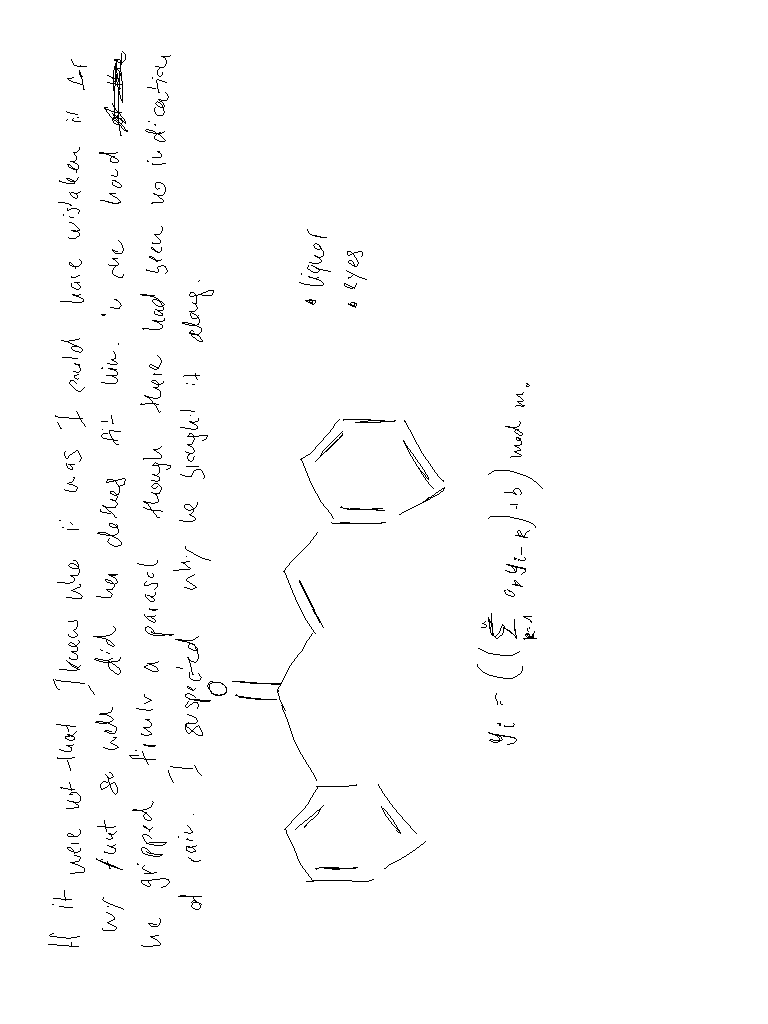 If it were not that I knew who it was I could have mistaken it for
my aunt so well did her clothes fit him. in one hand
he gripped firmly a parasol though there had been no indication
of rain. I suspected why he brought it along.
• liquor
• eyes
O
y_i = ((∑_{k=1} a_k y_{i-k}) + b) mod m.